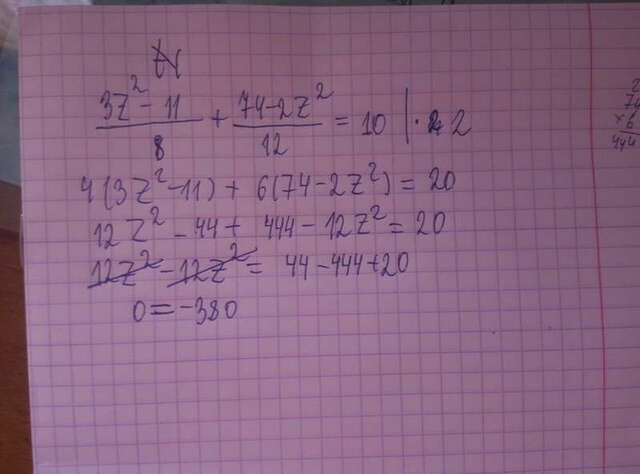 N
3z² - 11 / 8 + 74 - 2z² / 12 = 10 | · 2
4(3z² - 11) + 6(74 - 2z²) = 20
12z² - 44 + 444 - 12z² = 20
12z² - 12z² = 44 - 444 + 20
0 = -380
2
74
× 6
444